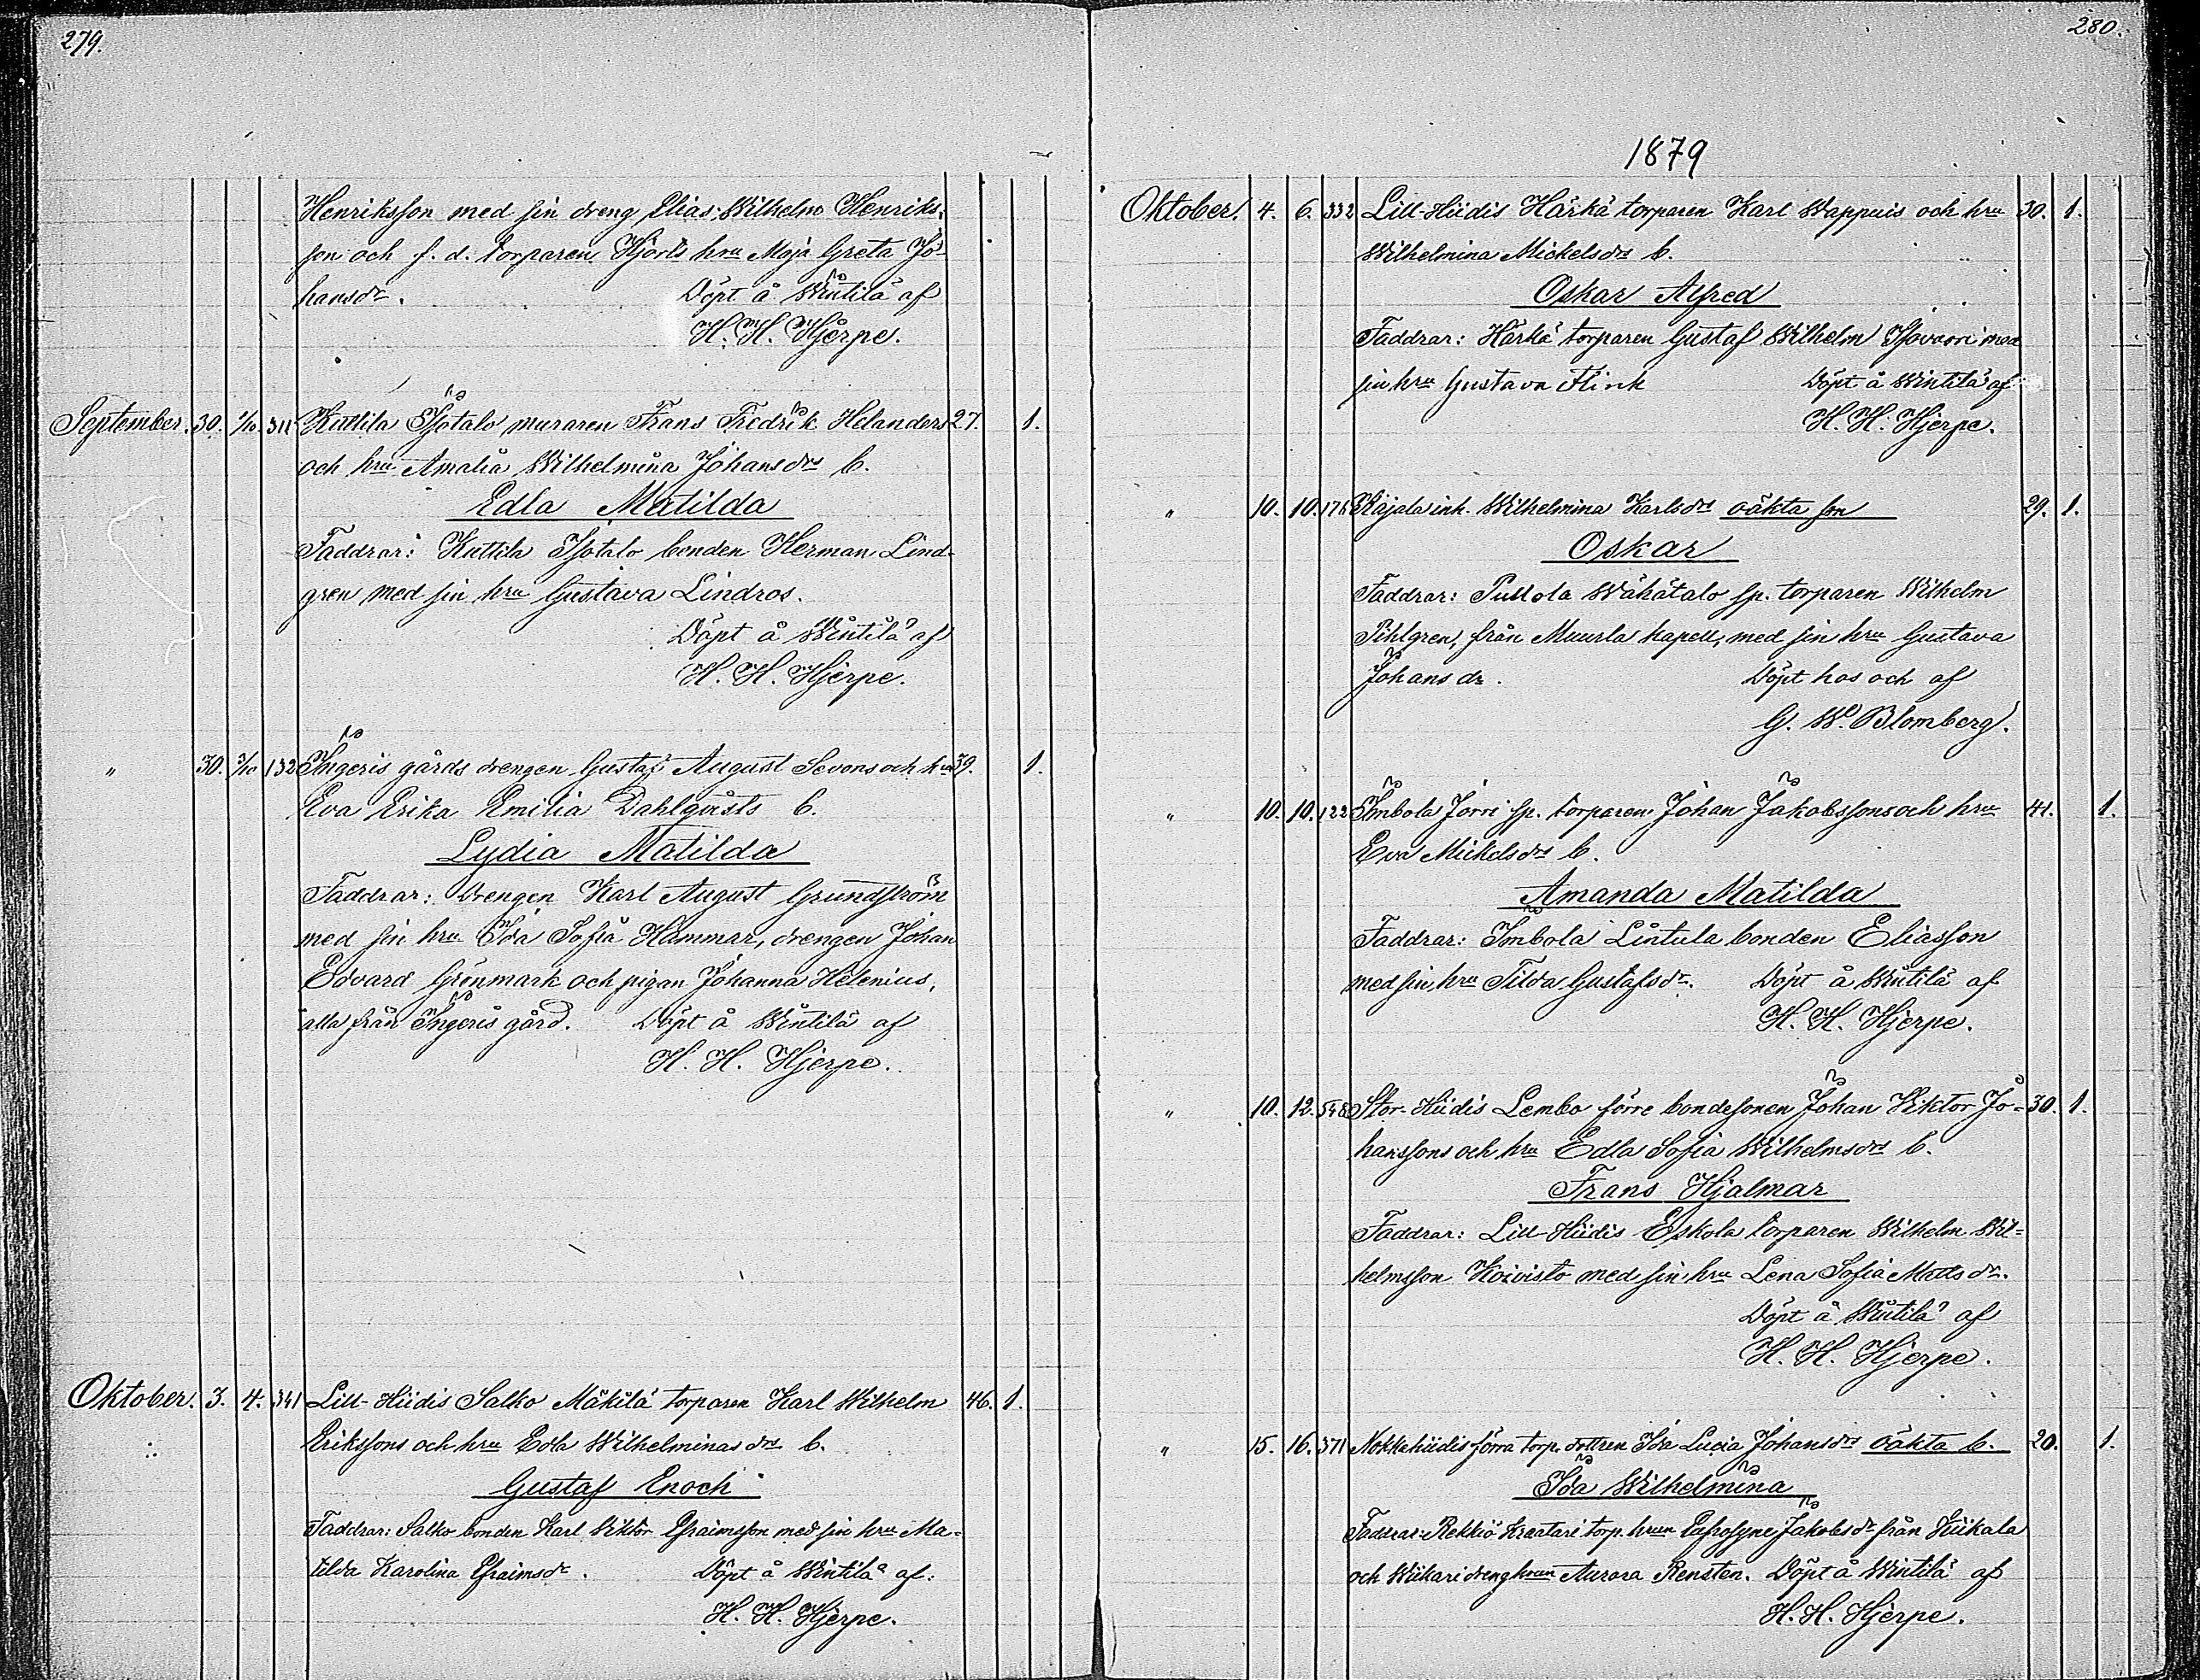 279.
Henriksson med sin dreng Elias Wilhelm Henriks-
son och f. d. torparen Hjorts hru Maja Greta Jo-
hansdr. Döpt å Wintilä af
H. H. Hjerpe.
September. 30. 1/10. 311 Kuttila Isotalo muraren Frans Fredrik Helanders 27. 1.
och hru Amalia Wilhelmina Johansdrs b.
Edla Matilda
Faddrar: Kuttila Isotalo bonden Herman Lind-
gren med sin hru Gustava Lindros.
Döpt å Wintilä af
H. H. Hjerpe.
" 30. /10 132 Ingeris gårds drengen Gustaf August Sevons och hru 39. 1.
Eva Erika Emilia Dahlqvists b.
Lydia Matilda
Faddrar: Drengen Karl August Grundström
med sin hru Ida Sofia Hammar, drengen Johan
Edvard Grönmark och pigan Johanna Helenius,
alla från Ingeris gård. Döpt å Wintilä af
H. H. Hjerpe.
Oktober. 3. 4. 341 Lill-Hiidis Salko Mäkilä torparen Karl Wilhelm 46. 1.
Erikssons och hru Edla Wilhelminas drs b.
Gustaf Enoch
Faddrar: Salko bonden Karl Viktor Efraimsson med sin hru Ma-
tilda Karolina Efraimsdr. Döpt å Wintilä af
H. H. Hjerpe.
280.
1879
Oktober. 4. 6. 332 Lill-Hiidis Härkä torparen Karl Wappuis och hru 30. 1.
Wilhelmina Mickelsdrs b.
Oskar Alfred
Faddrar: Härkä torparen Gustaf Wilhelm med
sin hru Gustava Flink Döpt å Wintilä af
H. H. Hjerpe.
" 10. 10. 176 inh. Wilhelmina Karlsdrs oäkta son 29. 1.
Oskar
Faddrar: Pullola Wähätalo sp. torparen Wilhelm
Pihlgren, från Muurla kapell, med sin hru Gustava
Johansdr. Döpt hos och af
G. W. Blomberg.
" 10. 10. 122 Imbola Jörri sp. torparen Johan Jakobssons och hru 41. 1.
Eva Mickelsdrs b.
Amanda Matilda
Faddrar: Imbola Lintula bonden Eliasson
med sin hru Tilda Gustafsdr. Döpt å Wintilä af
H. H. Hjerpe.
" 10. 12. 548 Stor-Hiidis Lembo förre bondesonen Johan Viktor Jo- 30. 1.
hanssons och hru Edla Sofia Wilhelmsdrs b.
Frans Hjalmar
Faddrar: Lill-Hiidis Eskola torparen Wilhelm Wil-
helmsson Koivisto med sin hru Lena Sofia Mattsdr.
Döpt å Wintilä af
H. H. Hjerpe.
" 15. 16. 371 Nokkahiidis förra torp. dottren Ida Lucia Johansdrs oäkta b. 20. 1.
Ida Wilhelmina
Faddrar: Rekkiö Kraatari torp. hrun Eufrosyne Jakobsdr från Kiikala
och Wiikari dreng hrun Aurora Rensten. Döpt å Wintilä af
H. H. Hjerpe.